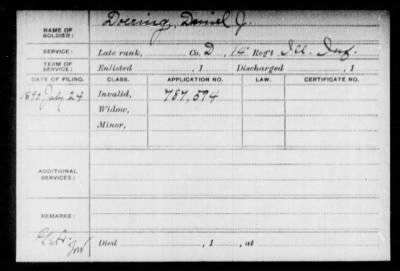 NAME OF SOLDIER: Doering, Daniel J.
SERVICE: Late rank, Co. D, 14 Reg't Ill. Inf.
TERM OF SERVICE: Enlisted , 1 Discharged , 1
DATE OF FILING. CLASS. APPLICATION NO. LAW. CERTIFICATE NO.
1890 July 24 Invalid, 787,594
Widow,
Minor,
ADDITIONAL SERVICES:
REMARKS:
Died , 1 , at